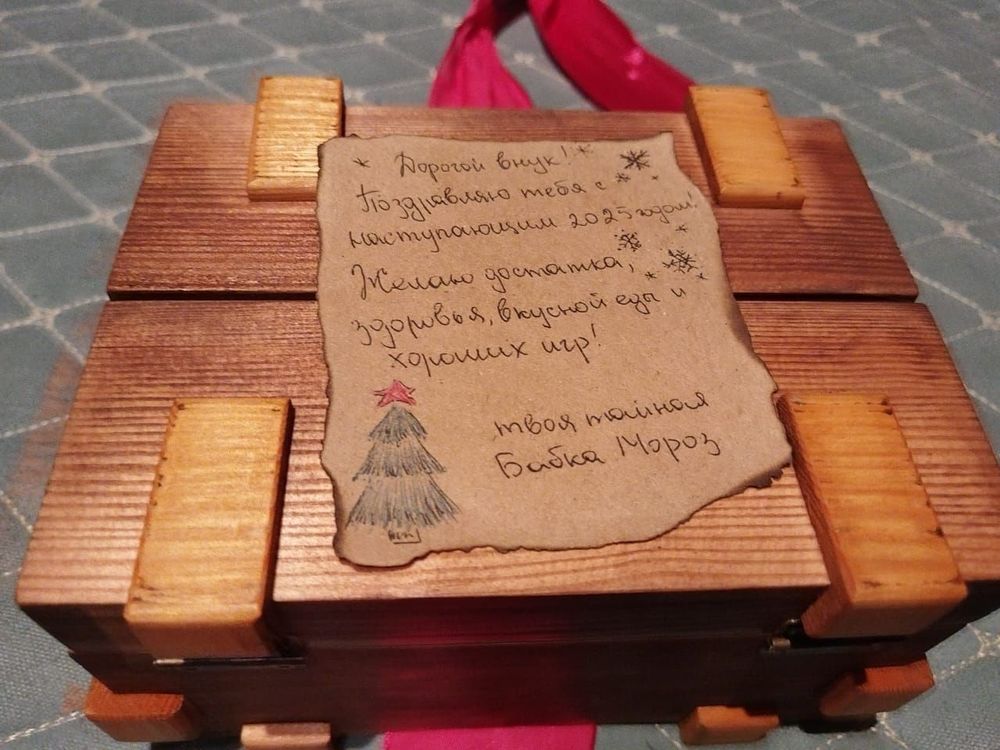 Дорогой внук!
Поздравляю тебя с
наступающим 2025 годом!
Желаю достатка,
здоровья, вкусной еды и
хороших игр!
твоя тайная
Бабка Мороз